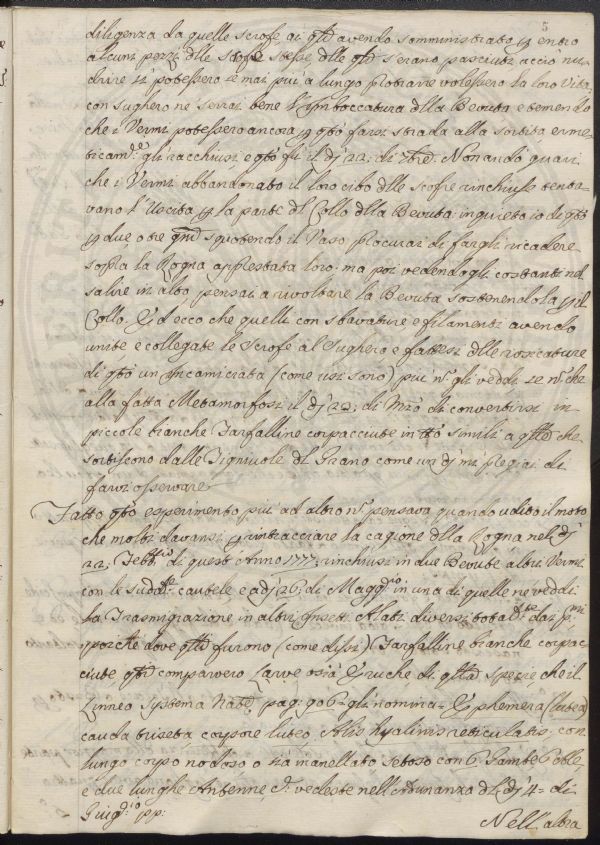 5
diligenza da quelle scrofe ai qti avendo somministrato p entro
alcuni pezzi dlle scrofe stesse dlle qli s'erano pasciuti accio nu-
drire si potessero se mai piu a lungo protrarre volessero la loro Vita:
con sughero ne serrai bene l'Imboccatura dlla Bevuta e temendo
che i Vermi potessero ancora p qto farsi strada alla sortita erme-
ticamte gli racchiusi e qto fu il dj 22: di Non andò guari
che i Vermi abbandonato il loro cibo dlle scrofe rinchiuse tenta-
vano l'Uscita p la parte dl Collo dlla Bevuta: inquieto io di qto
p due o tre squotendo il Vaso procurai di fargli ricadere
sopra la Rogna apprestata loro: ma poi vedendogli costanti nel
salire in alto pensai a rivoltare la Bevuta sostenendola p il
Collo. Ed ecco che quelli con sbavature e filamenti avendo
unite e collegate le Scrofe al Sughero e fattesi dlle rosicature
di qto un Incamiciata (come usi sono) piu n. gli veddi se n. che
alla fatta Metamorfosi il dj 22: di Mzo di convertirsi in
piccole bianche Farfalline corpacciute in tto simili a qlle che
sortiscono dalle Tignuole dl Grano come un dj mi pregiai di
farvi osservare
Fatto qto esperimento piu ad altro n. pensava quando udito il moto
che molti davansi p rintracciare la cagione dlla Rogna nel dj
22: Febbio di quest'Anno 1777: rinchiusi in due Bevute altri Vermi
con le sudde cautele e a dj 26: di Maggio in una di quelle ne veddi
la Trasmigrazione in altri Insetti Alati diversi totalte dai pmi
poiche dove qlli furono (come dissi) Farfalline bianche corpac-
ciute qti comparvero Larve osia Eruche di qlla spezie che il
Linneo Systema Natæ pag: 906 - gli nomina - Ephemera (lutea)
cauda triseta corpore luteo Alis hyalinis reticulatis: con
lungo corpo nodoso o sia inanellato setoso con 6 Gambe
e due lunghe Antenne vedeste nell'Adunanza dl dj 4 - di
Giugio pp:
Nell'altra